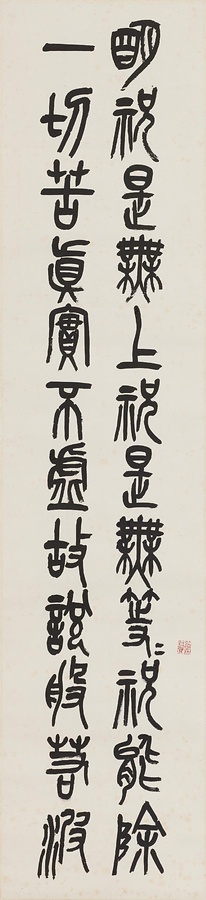 明祝是無上祝是無等〻祝能除
一切苦真實不虛故說般若波